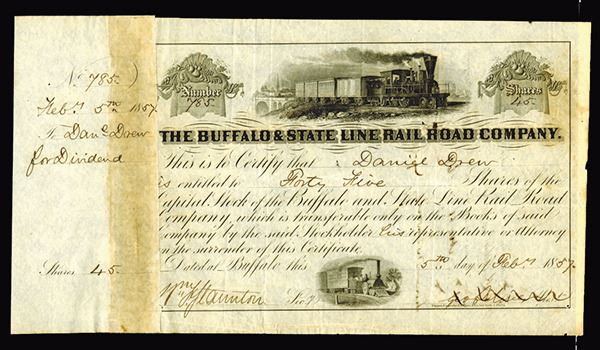 No 785.
Feby 5th 1857
To Danl Drew
for Dividend
Shares 45.
Number
785
Shares
45.
THE BUFFALO & STATE LINE RAIL ROAD COMPANY.
This is to Certify that Daniel Drew
is entitled to Forty Five Shares of the
Capital Stock of the Buffalo and State Line Rail Road
Company, which is transferable only on the Books of said
Company by the said Stockholder his representative or Attorney
on the surrender of this Certificate.
Dated at Buffalo this 5th day of Feby 1857.
Staunton Secy